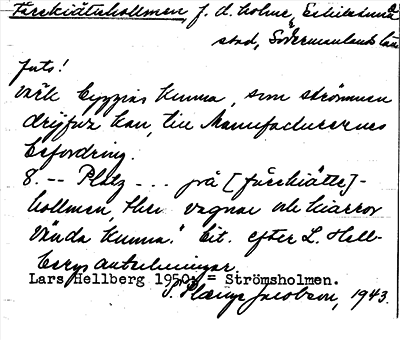 Fårskiätnhollmen f. d. holme, Eskilstuna
stad, Södermanlands län
Juts!
värk byggias kunna, som strömmen
drijfwa kan, till Manufacturernes
befordring.
8. -- Platz --- på [fårskiätte]-
hollmen, ther vagnar och kiärror
vända kunna." Cit. efter L. Hell-
bergs anteckningar.
Lars Hellberg 1950: = Strömsholmen.
S. Jacobson, 1943.